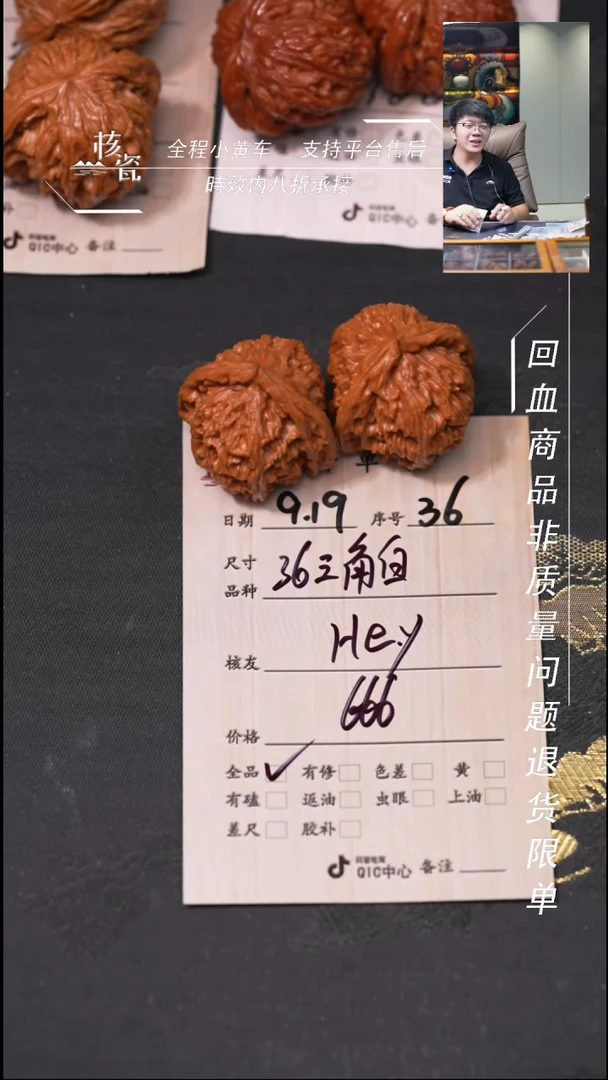 核瓷
全程小黄车 支持平台售后
時效内八折承接
抖音电商
QIC中心 备注
抖音电商
QIC中心 备注
回血商品非质量问题退货限单
单
日期 9.19 序号 36
尺寸
品种 36三角白
核友 Hey
价格 666
全品 ✓ 有修 色差 黄
有磕 返油 虫眼 上油
差尺 胶补
抖音电商
QIC中心 备注